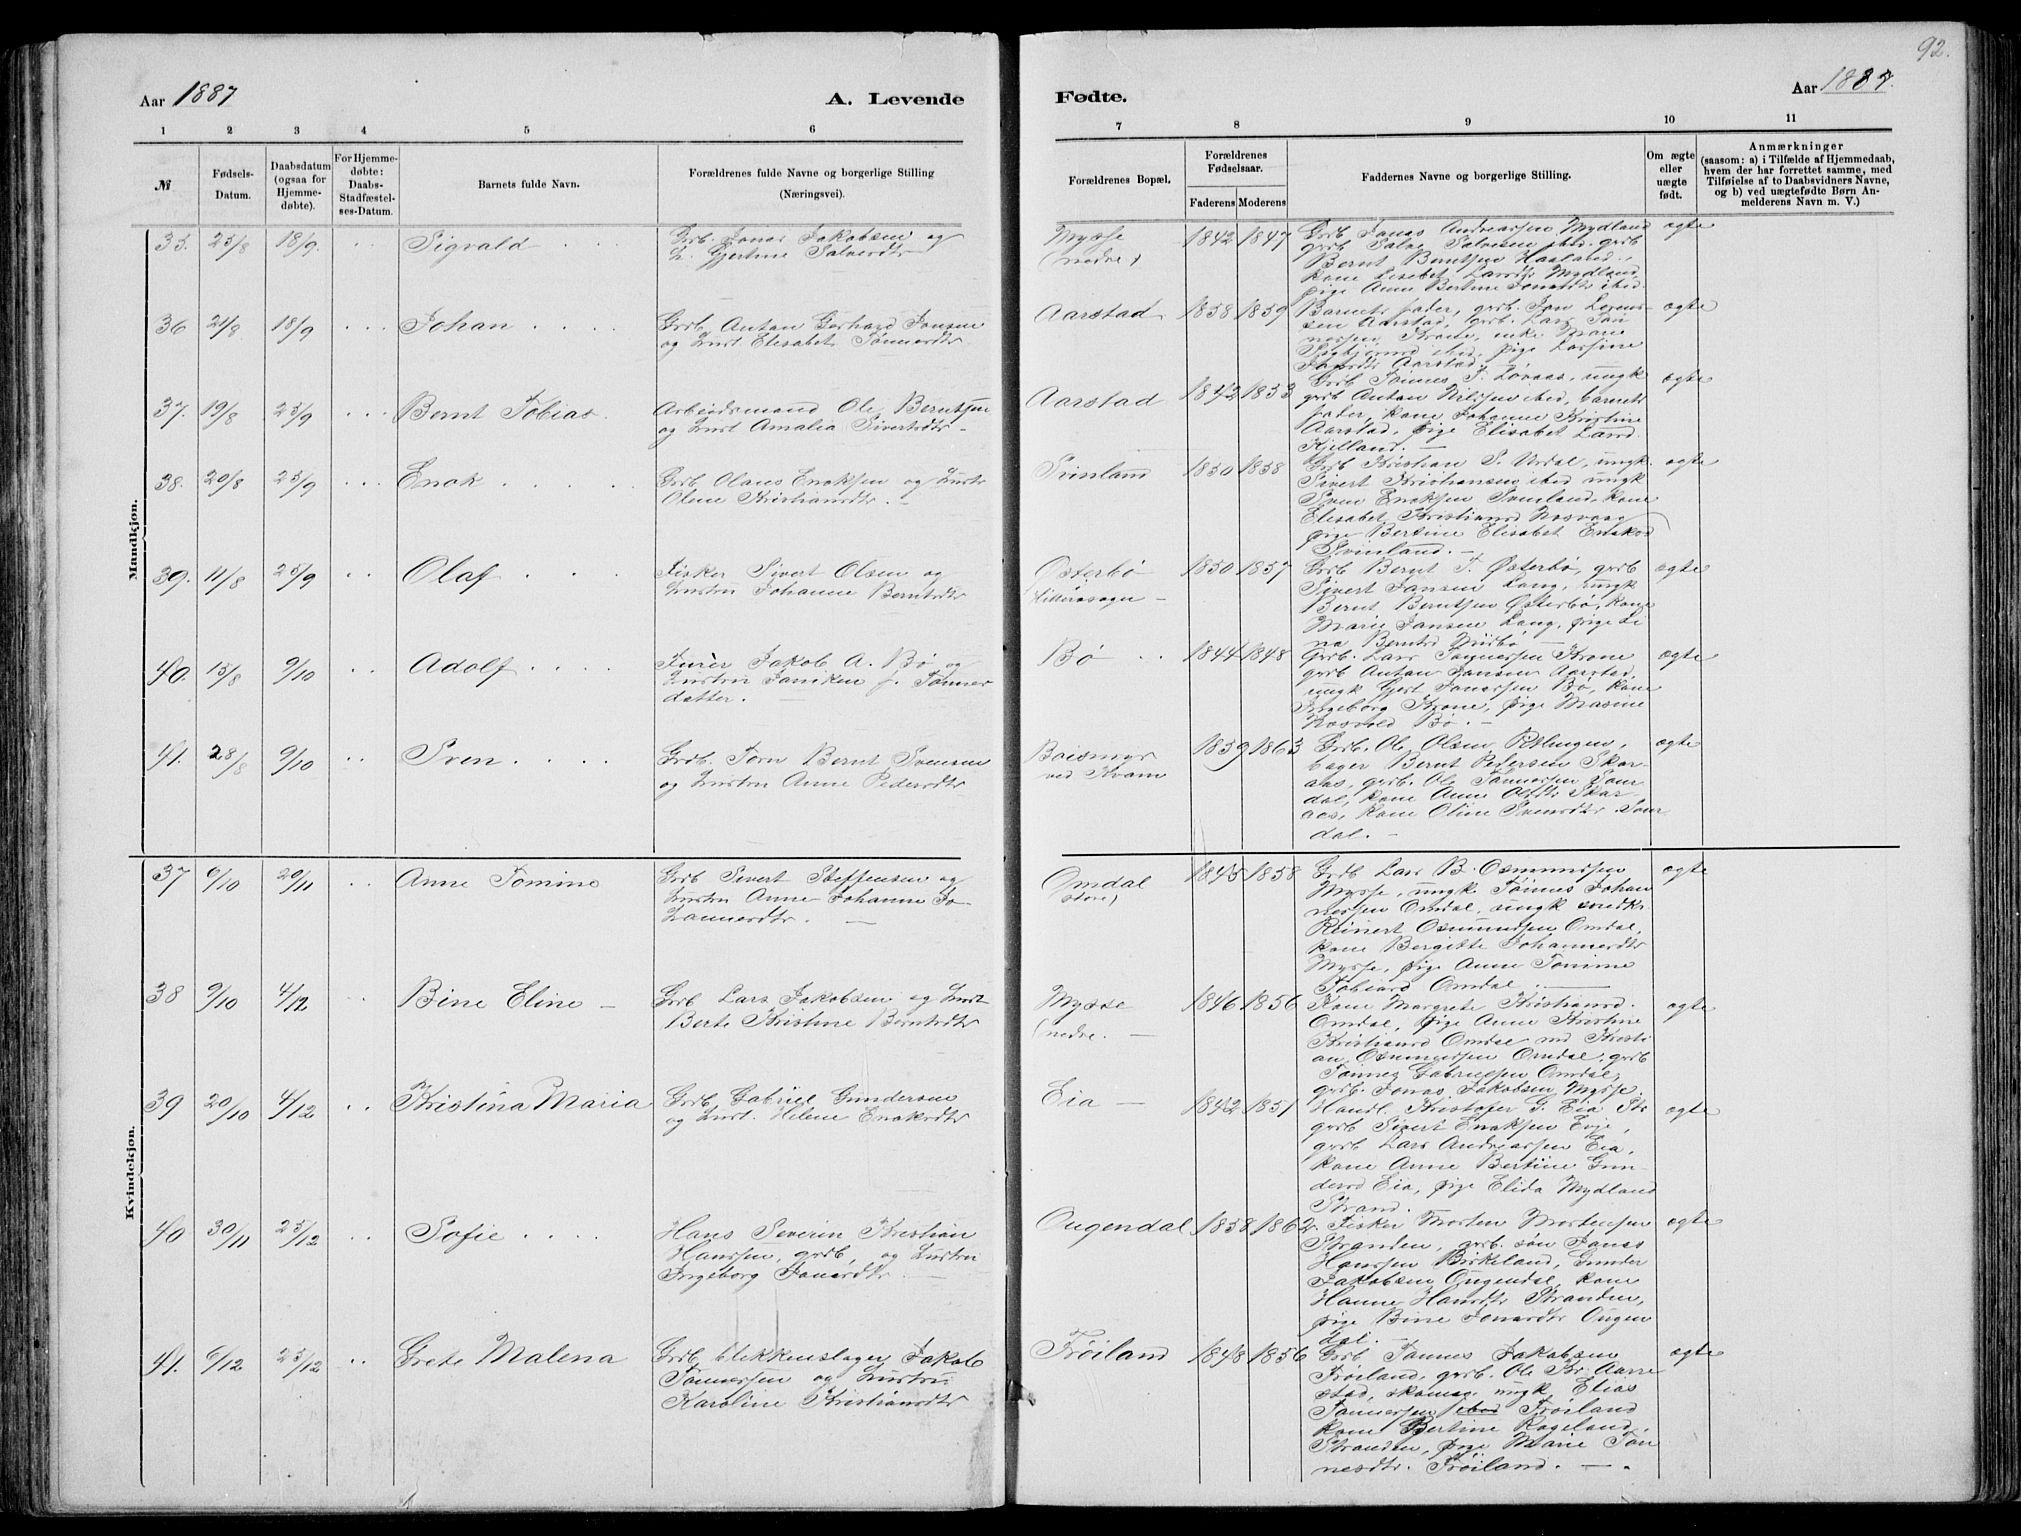 92.
Aar 1887
A. Levende
Fødte.
Aar 1887.
1 2 3 4 5 6 7 8 9 10 11
№
Fødsels-
Datum.
Daabsdatum
(ogsaa for
Hjemme-
døbte).
For Hjemme-
døbte:
Daabs-
Stadfæstel-
ses-Datum.
Barnets fulde Navn.
Forældrenes fulde Navne og borgerlige Stilling
(Næringsvei).
Forældrenes Bopæl.
Forældrenes
Fødselsaar.
Faderens Moderens
Faddernes Navne og borgerlige Stilling.
Om ægte
eller
uægte
født.
Anmærkninger
(saasom: a) i Tilfælde af Hjemmedaab,
hvem der har forrettet samme, med
Tilføielse af to Daabsvidners Navne,
og b) ved uægtefødte Børn An-
melderens Navn m. V.)
Mandkjøn.
35. 25/8 18/9. Sigvald
Grb. Jonas Jakobsen og
H. Gjertine Salvesdtr
Mysse
(nedre)
1842 1847
Grb Jonas Andreassen Mydland
grb Salve Salvesen ibid. grb
Bernt Berntsen Haaland,
kone Lisabet Larsdtr Mydland,
pige Anne Bertine Jonasdtr ibid.
ægte
36 21/8 18/9 Johan
Grb. Antan Gerhard Jansen
og Hust Elisabet Tønnesdtr.
Aarstad
1858 1859
Barnets fader, grb. Jan Lorens-
sen Aarstad, grb. Lars Tøn-
nessen Krone, enke Marie
ibid, pige Larsine
Aarstad.
ægte
37. 19/8 25/9 Bernt Tobias.
Arbeidsmand Ole Berntsen
og Hust Amalia Sivertsdtr.
Aarstad
1842 1853
Grb Tønnes T. Løvaas, ungk
grb Antan Nilssen ibid, barnets
fader, kone Johanne Kristine
Aarstad, pige Elisabet Larsd.
Kjelland.
ægte
38. 20/8 25/9 Enok
Grb. Olaus Enoksen og Hustr
Olene Kristiansdtr.
Svinland
1850 1858
Grb Kristian S. Urdal, ungk.
Sivert Kristiansen ibid ungk
Sven Enoksen Svinland, kone
Elisabet Kristiansd
pige Bertine Elisabet Enoksd
Svinland.
ægte
39. 11/8 25/9 Olaf
Fisker Sivert Olsen og
Hustru Johanne Berntsdtr
Østerbø
Hitterøsogn
1850 1857
Grb Bernt T. Østerbø, grb
Sivert Jansen Lang, ungk
Bernt Berntsen Østerbø, kone
Marie Jansen Lang, pige Le
na Berntsd
ægte
40. 15/8 9/10 Adolf
Jakob A. Bø og
Hustru Janiken f. Tønnes
datter.
Bø
1844 1848
Grb. Lars Tønnessen Krone
grb Antan Jansen Aarstad,
ungk Gjert Jonassen Bø, kone
Ingeborg Krone, pige Masine
Rosvold Bø.
ægte
41. 28/8 9/10 Sven
Grb. Jørn Bernt Svensen
og Hustru Anne Pedersdtr
Boismyr
ved Kvam
1839 1863
Grb. Ole Olsen Refningen,
bager Bernt Pedersen Skar-
aas, grb. Ole Tønnessen Søm
dal, kone Anne Olsdtr Skar-
aas, kone Oline Svensdtr Søm
dal.
ægte
Kvindekjøn.
37 6/10 20/11 Anne Tomine
Grb Sivert Steffensen og
Hustru Anne Johanne Jo-
hannesdtr.
Omdal
store)
1845 1858
Grb Lars B. Osmundsen
Mysse, ungk Tønnes Johan
nessen Omdal, ungk snedkr.
Reinert Osmundsen Omdal,
kone Bergitte Johannesdtr
Mysse, pige Anne Tomine
Tobiasd Omdal.
ægte
38 9/10 4/12 Bine Eline
Grb Lars Jakobsen og Hust
Berte Kristine Berntsdtr
Mysse
(nedre.
1846 1856
Kone Margrete Kristiansd.
Omdal, pige Anne Kristine
Kristiansd Omdal, ud Kristi
an Osmundsen Omdal, grb
Tønnes Gabrielsen Omdal,
grb. Jonas Jakobsen Mysse.
ægte
39 20/10 4/12 Kristina Maria
Grb Gabriel Gundersen
og Hust. Helene Enoksdtr
Eia
1842 1851
Handl. Kristofer G. Eia Str
grb Sivert Enoksen Eije,
grb Lars Andreassen Eia,
kone Anne Bertine Gun-
dersd Eia, pige Elida Mydland
Strand.
ægte
40 30/11 25/12 Sofie
Hans Severin Kristian
Hanssen, grb, og Hustru
Ingeborg Jonasdtr.
Ougendal
1858 1862
Fisker Morten Mortensen
Stranden, grb. søn Jonas
Hanssen Birkeland, Gunder
Jakobsen Ougendal, kone
Hanne Hansdtr Stranden,
pige Bine Jonasdtr Ougen
dal.
ægte
41. 6/12 25/12 Grete Malena
Grb, blikkenslager Jakob
Tønnessen og Hustru
Karoline Kristiansdtr
Frøiland
1848 1856
Grb Tønnes Jakobsen
Frøiland, grb. Ole Kr. Aarre
stad, skomag ungk, Elias
Tønnessen ibid Frøiland
kone Bertine Rageland,
Stranden, pige Marie Tøn
nesdtr. Frøiland.
ægte